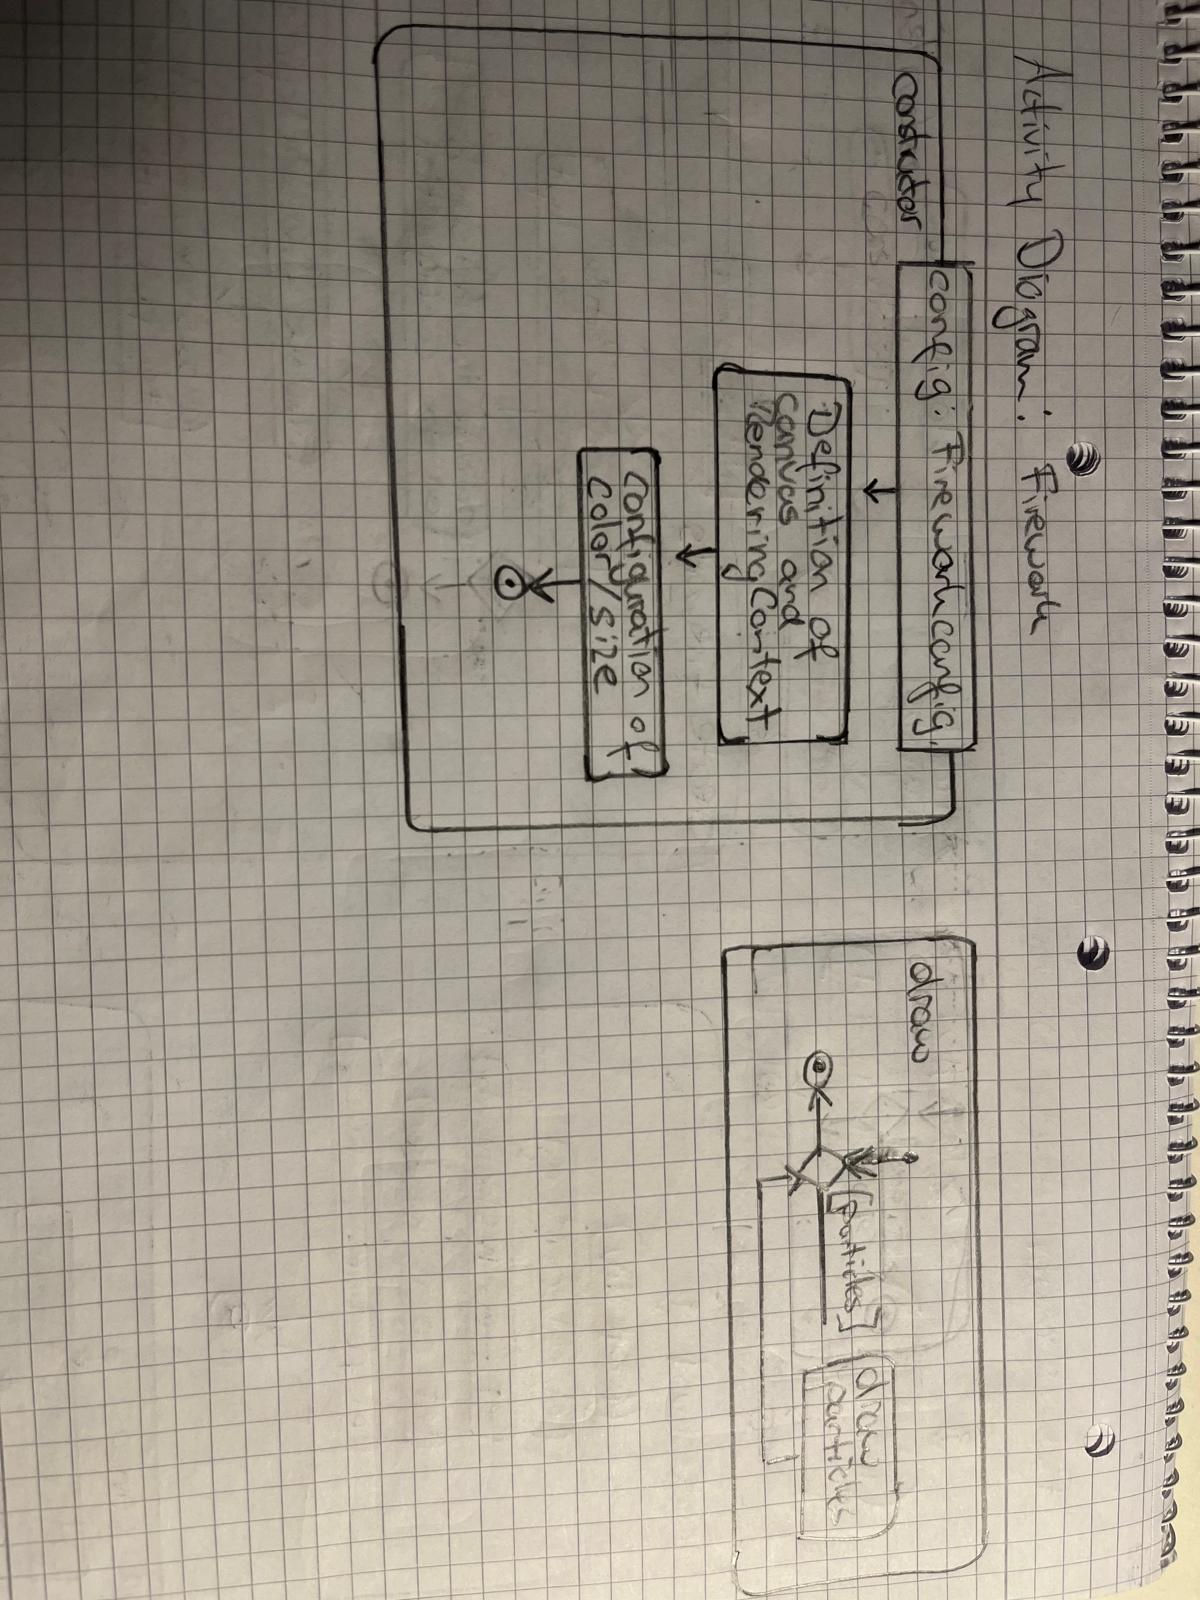 Activity Diagram: Firework
constructor
config: Fireworkconfig
Definition of
canvas and
RenderingContext
Configuration of
Color/size
draw
[particles]
draw
particles